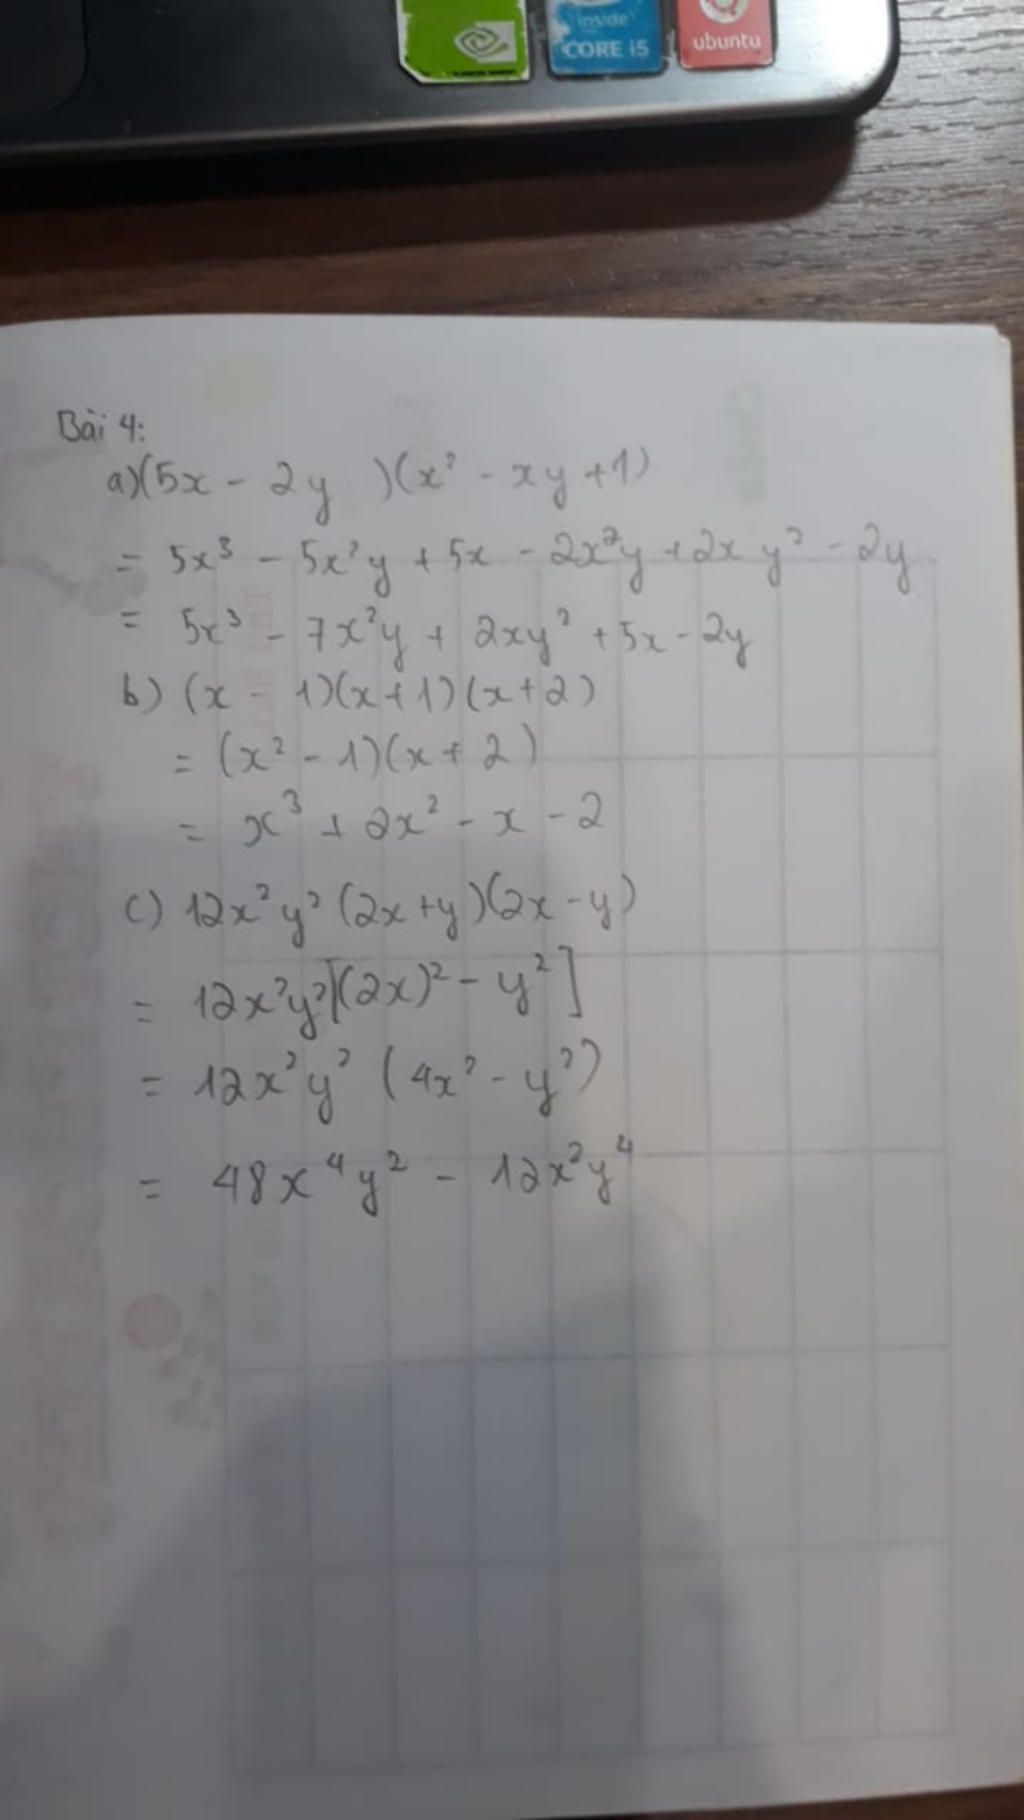 inside
CORE i5
ubuntu
Bài 4:
a)(5x - 2y )(x² - xy + 1)
= 5x³ - 5x²y + 5x - 2x²y + 2xy² - 2y
= 5x³ - 7x²y + 2xy² + 5x - 2y
b) (x - 1)(x + 1)(x + 2)
= (x² - 1)(x + 2)
= x³ + 2x² - x - 2
c) 12x²y² (2x + y)(2x - y)
= 12x²y²[(2x)² - y²]
= 12x²y² (4x² - y²)
= 48x⁴y² - 12x²y⁴